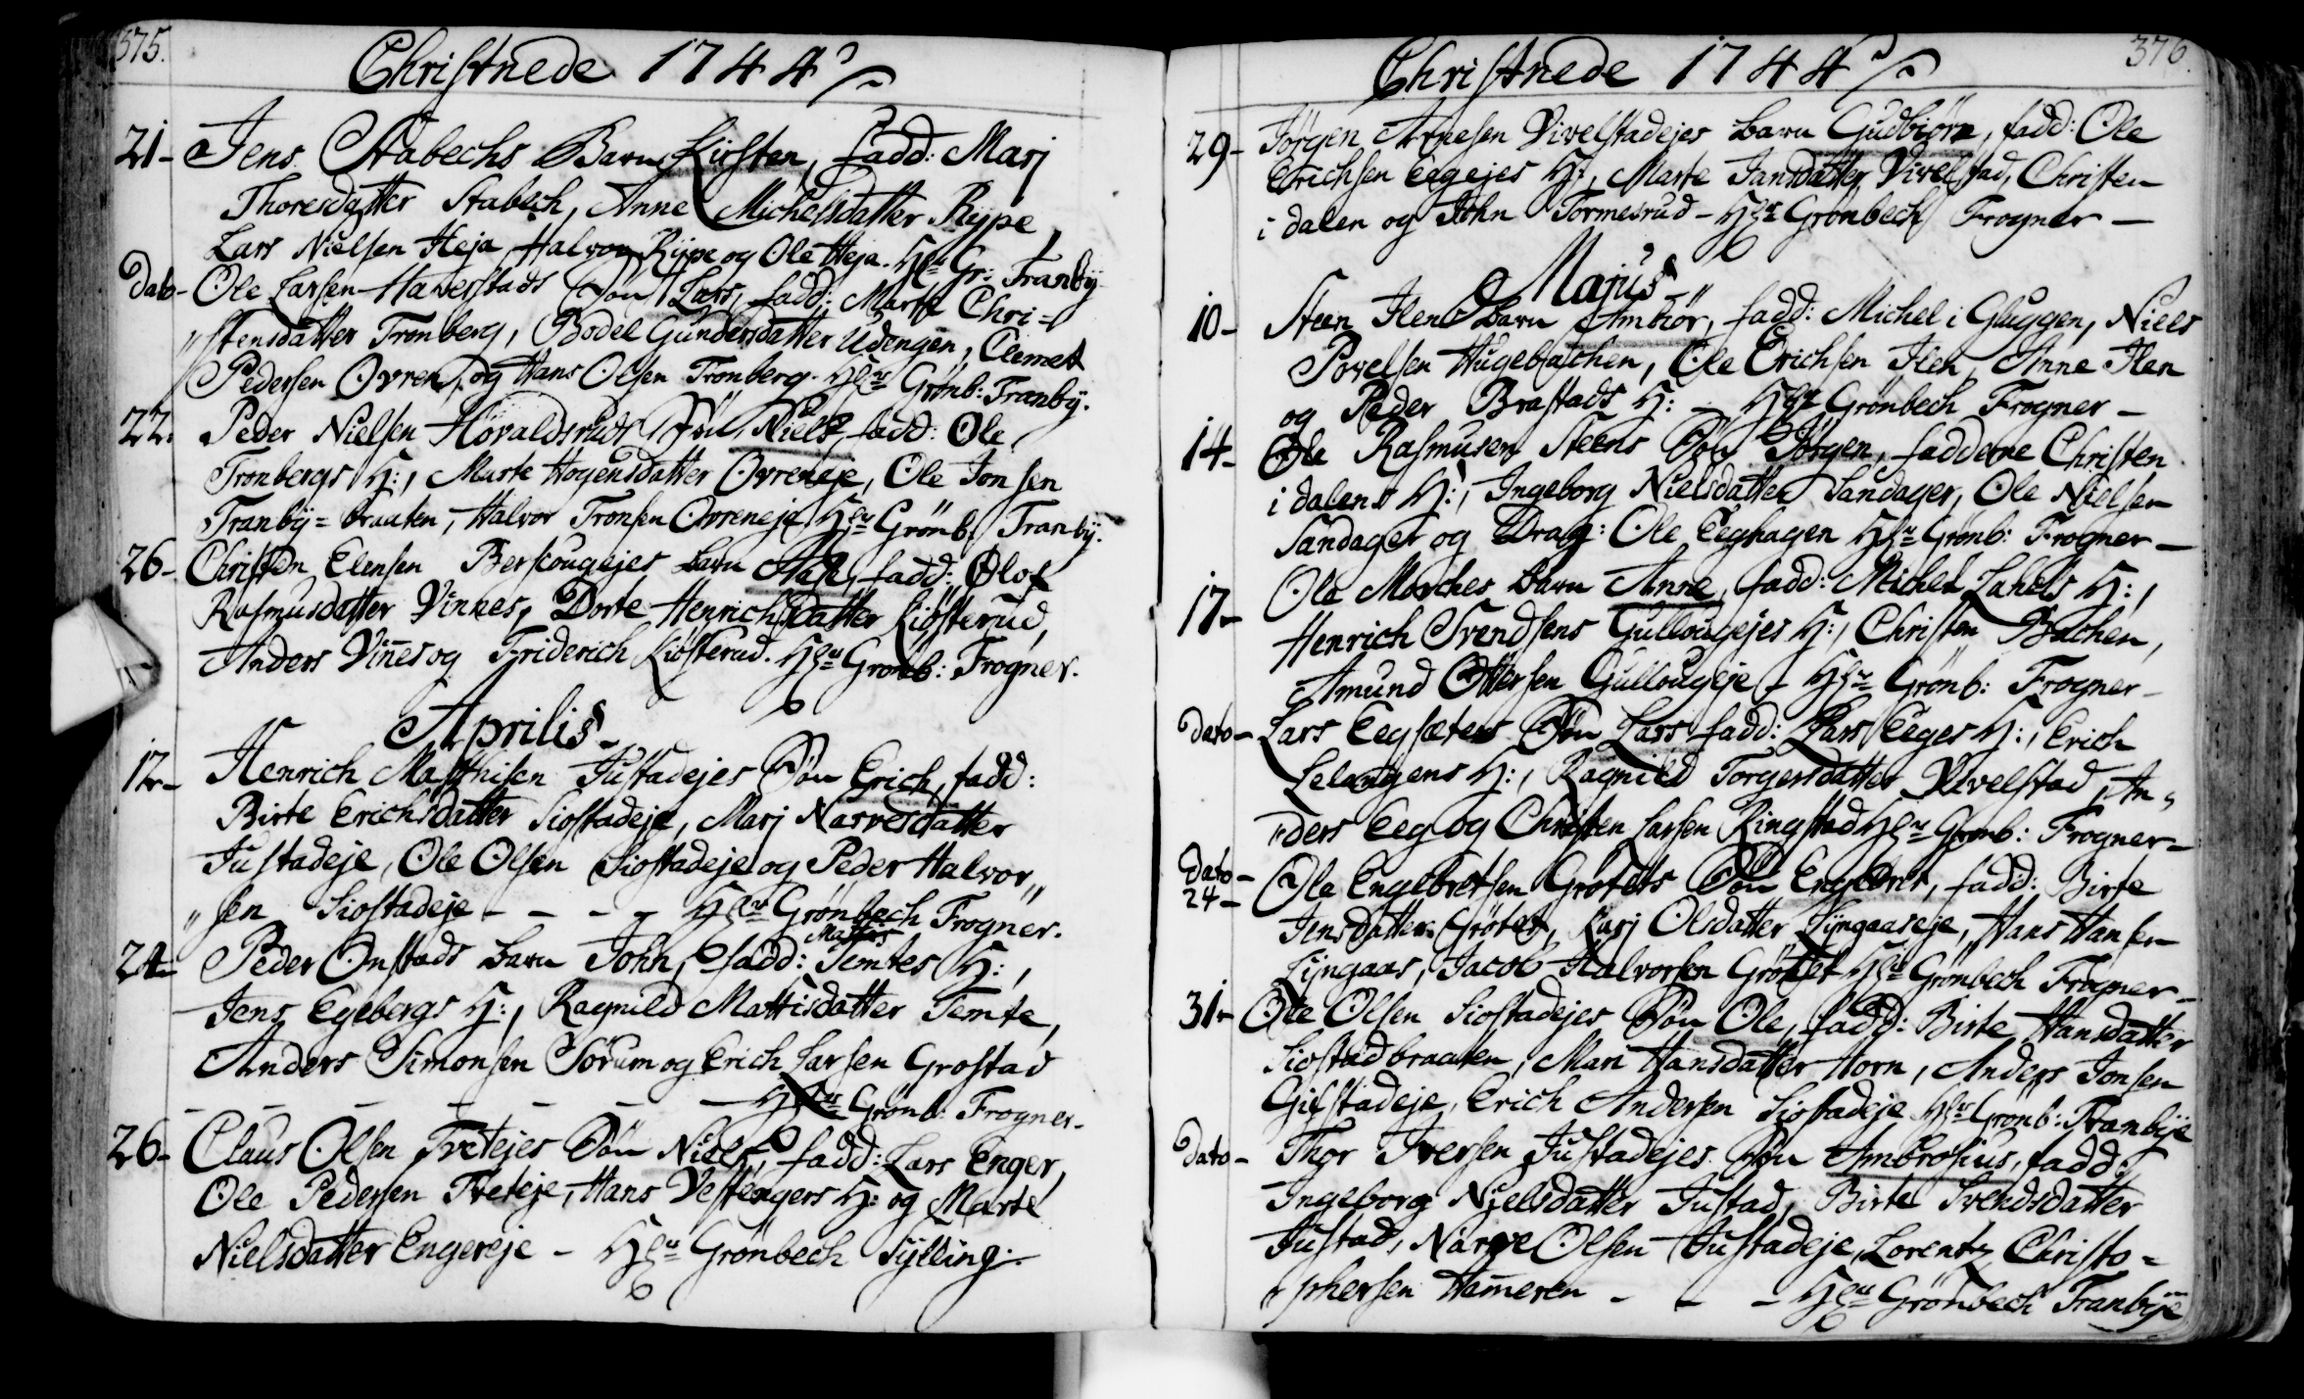 375.
Christnede 1744
21- Jens Stabechs Barn Kirsten, fadd: Marj
Thoresdatter Stabech, Anne Michelsdatter Rype,
Lars Nielsen Heja Halvor Rijpe og Ole Heja. Hr Gr: Tranbÿ
Dato- Ole Larsen Haverstads Søn Lars, fadd: Marte Chri=
„stensdatter Tronberg, Bodel Gundersdatter Udengen, Clemet
Pedersen Ovren, og Hans Olsen Tronberg. Hr Grønb: Tranbÿ.
22. Peder Nielsen Hovaldsruds Søn Niels, fadd: Ole
Tronbergs H:, Marte Hogensdatter Ovreneje, Ole Jonsen
Tranbÿ=braaten, Halvor Tronsen Ovreneje Hr Grönb: Tranbÿ.
26- Christen Elensen Berscougejes barn fadd: Olof
Rasmusdatter Vinnes, Dorte Henrichsdatter Kiösterud,
Anders Vines og Friderich Kiösterud. Hr Grönb: Frogner.
Aprilis-
12- Henrich Matthisen Justadejes Søn Erich, fadd:
Birte Erichsdatter Siostadeje, Marj Narvesdatter
Justadeje, Ole Olsen Siostadeje og Peder Halvor„
„sen Siostadeje - - - - Hr Grönbech Frogner.
24- Peder Onstads barn John, fadd: Mattis Temtes H:,
Jens Egebergs H:, Ragnild Mattisdatter Temte,
Anders Simonsen Sörum og Erich Larsen Grostad
- - - - - - - Hr Grönb: Frogner-
26- Claus Olsen Tvetejes Sön Niels, fadd: Lars Enger,
Ole Pedersen Tveteje, Hans Vestengers H: og Marte
Nielsdatter Engereje - Hr Grönbech Sylling.
376.
Christnede 1744
29- Jörgen Arnesen Vivelstadejes barn Gudbiörn, fadd: Ole
Erichsen Eegejes H:, Marte Jansdatter Vivelstad, Christen
i dalen og John Tormesrud - Hr Grönbech Frogner -
Majus
10- Steen Ilens barn Ambiör, fadd: Michel i Gluggen, Niels
Povelsen Hugebachen, Ole Erichsen Ilen, Anne Ilen
og Peder Brastads H: - Hr Grönbech Frogner -
14- Ole Rasmusen Steens Sön Jörgen, fadderne Christen
i dalens H:, Ingeborg Nielsdatter Sandager, Ole Nielsen
Sandager og Drag: Ole Eeghagen Hr Grönb: Frogner -
17- Ole Morches barn Anne, fadd: Michel Lahels H:,
Henrich Svendsens Gullougejes H:, Christen Bachen,
Amund Ottersen Gullougeje - Hr Grönb: Frogner -
Dato- Lars Eegsæters Sön Lars fadd: Lars Eeges H:, Erich
H:, Ragnild Torgersdatter Vivelstad, An„
„ders Eeg og Christen Larsen Ringstad Hr Grönb: Frogner-
Dato-
24- Ole Engebretsen Gröttets Sön Engebret, fadd: Birte
Jensdatter Gröttet, Karj Olsdatter Lijngaaseje, Hans Hansen
Lijngaas, Jacob Halvorsen Gröttet Hr Grönbech Frogner-
31- Ole Olsen Siostadejes Sön Ole, fadd: Birte Hansdatter
Siostadbraaten, Mari Hansdatter Horn, Anders Jonsen
Gjestadeje, Erich Andersen Siostadeje Hr Grönb: Tranbÿe
Dato- Thor Iversen Justadejes Sön Ambrosius, fadd:
Ingeborg Nielsdatter Justad, Birte Svendsdatter
Justad, Narve Olsen Justadeje, Lorentz Christo=
„phersen Hameren - - - Hr Grönbech Tranbÿe